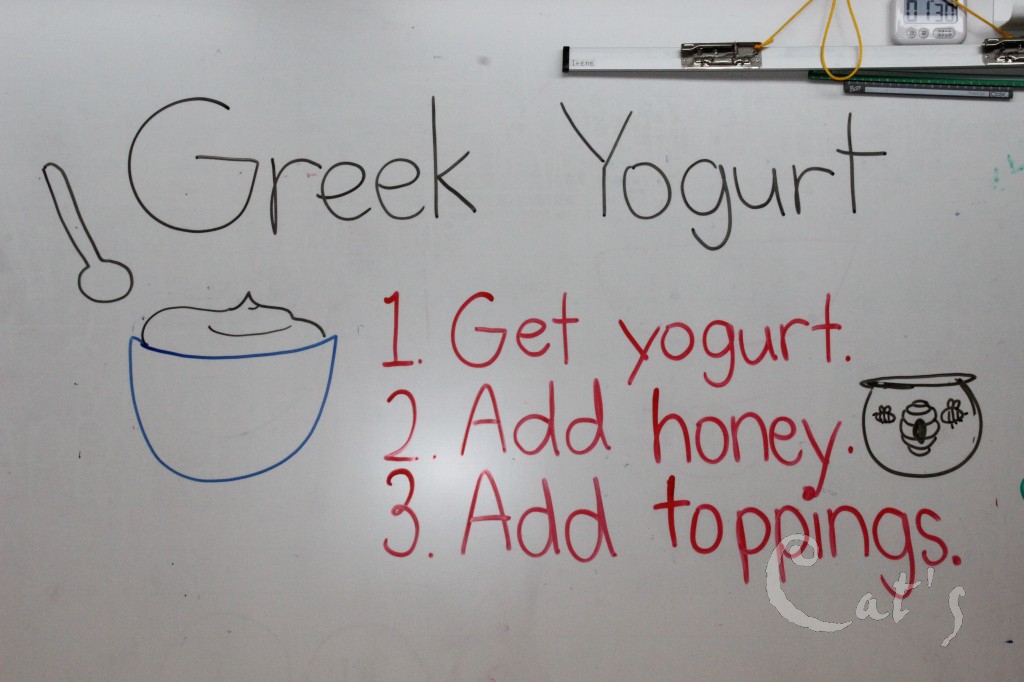 01:30
Greek Yogurt
1. Get yogurt.
2. Add honey.
3. Add toppings.
Cat's